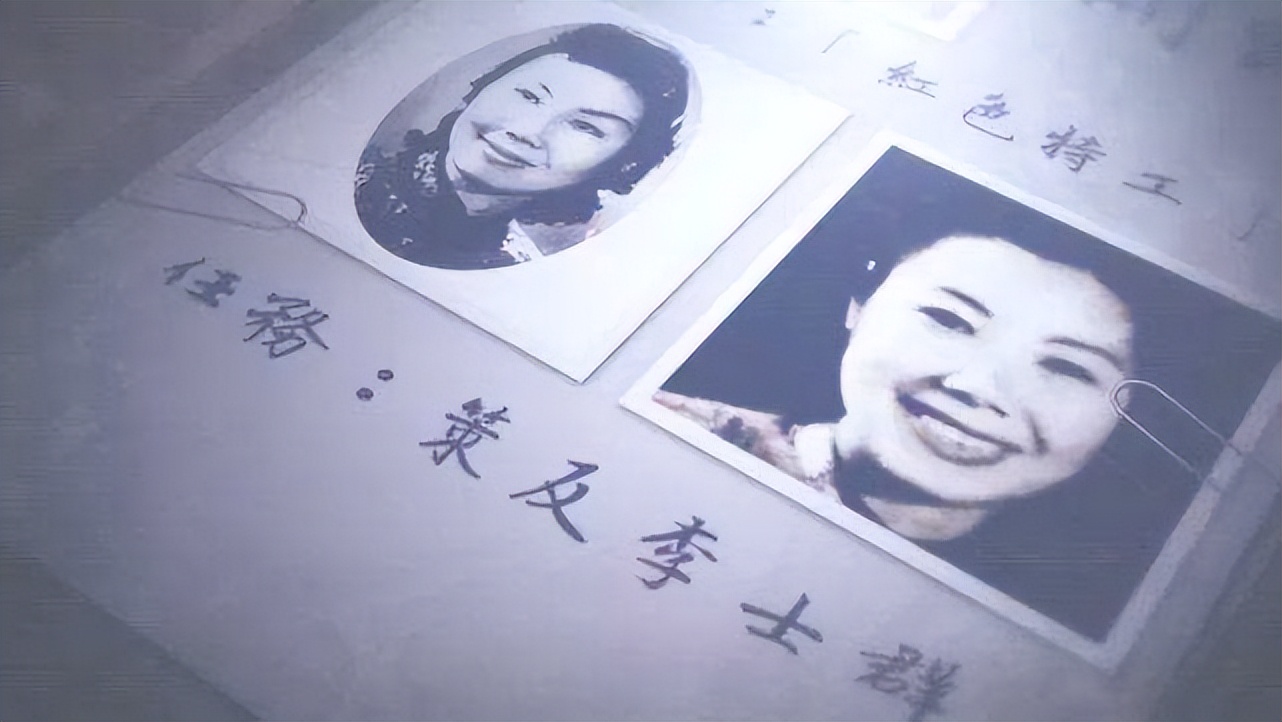 「紅色特工
任務：策反李士群